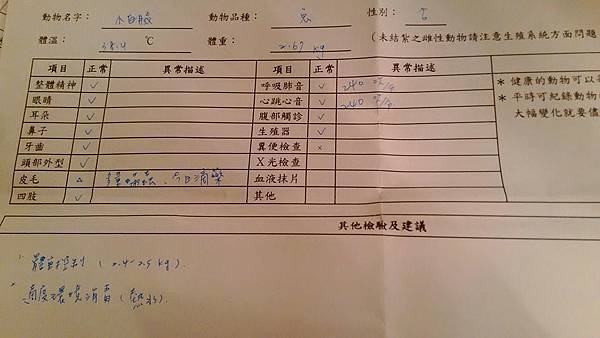 動物名字： 小白腹 動物品種： 兔 性別： 公
體溫： 38.4 ℃ 體重： 2.67 kg （未結紮之雌性動物請注意生殖系統方面問題
項目 正常 異常描述 項目 正常 異常描述
整體精神 ✓ 呼吸肺音 ✓ 240 次/分
眼睛 ✓ 心跳心音 ✓ 240 次/分
耳朵 ✓ 腹部觸診 ✓
鼻子 ✓ 生殖器 ✓
牙齒 ✓ 糞便檢查 ×
頭部外型 ✓ X光檢查
皮毛 △ 今日滴藥 血液抹片
四肢 ✓ 其他
* 健康的動物可以
* 平時可紀錄動物
大幅變化就要儘
其他檢驗及建議
體重控制 ( 2.4-2.5 kg ).
適度環境消毒 (熱水).